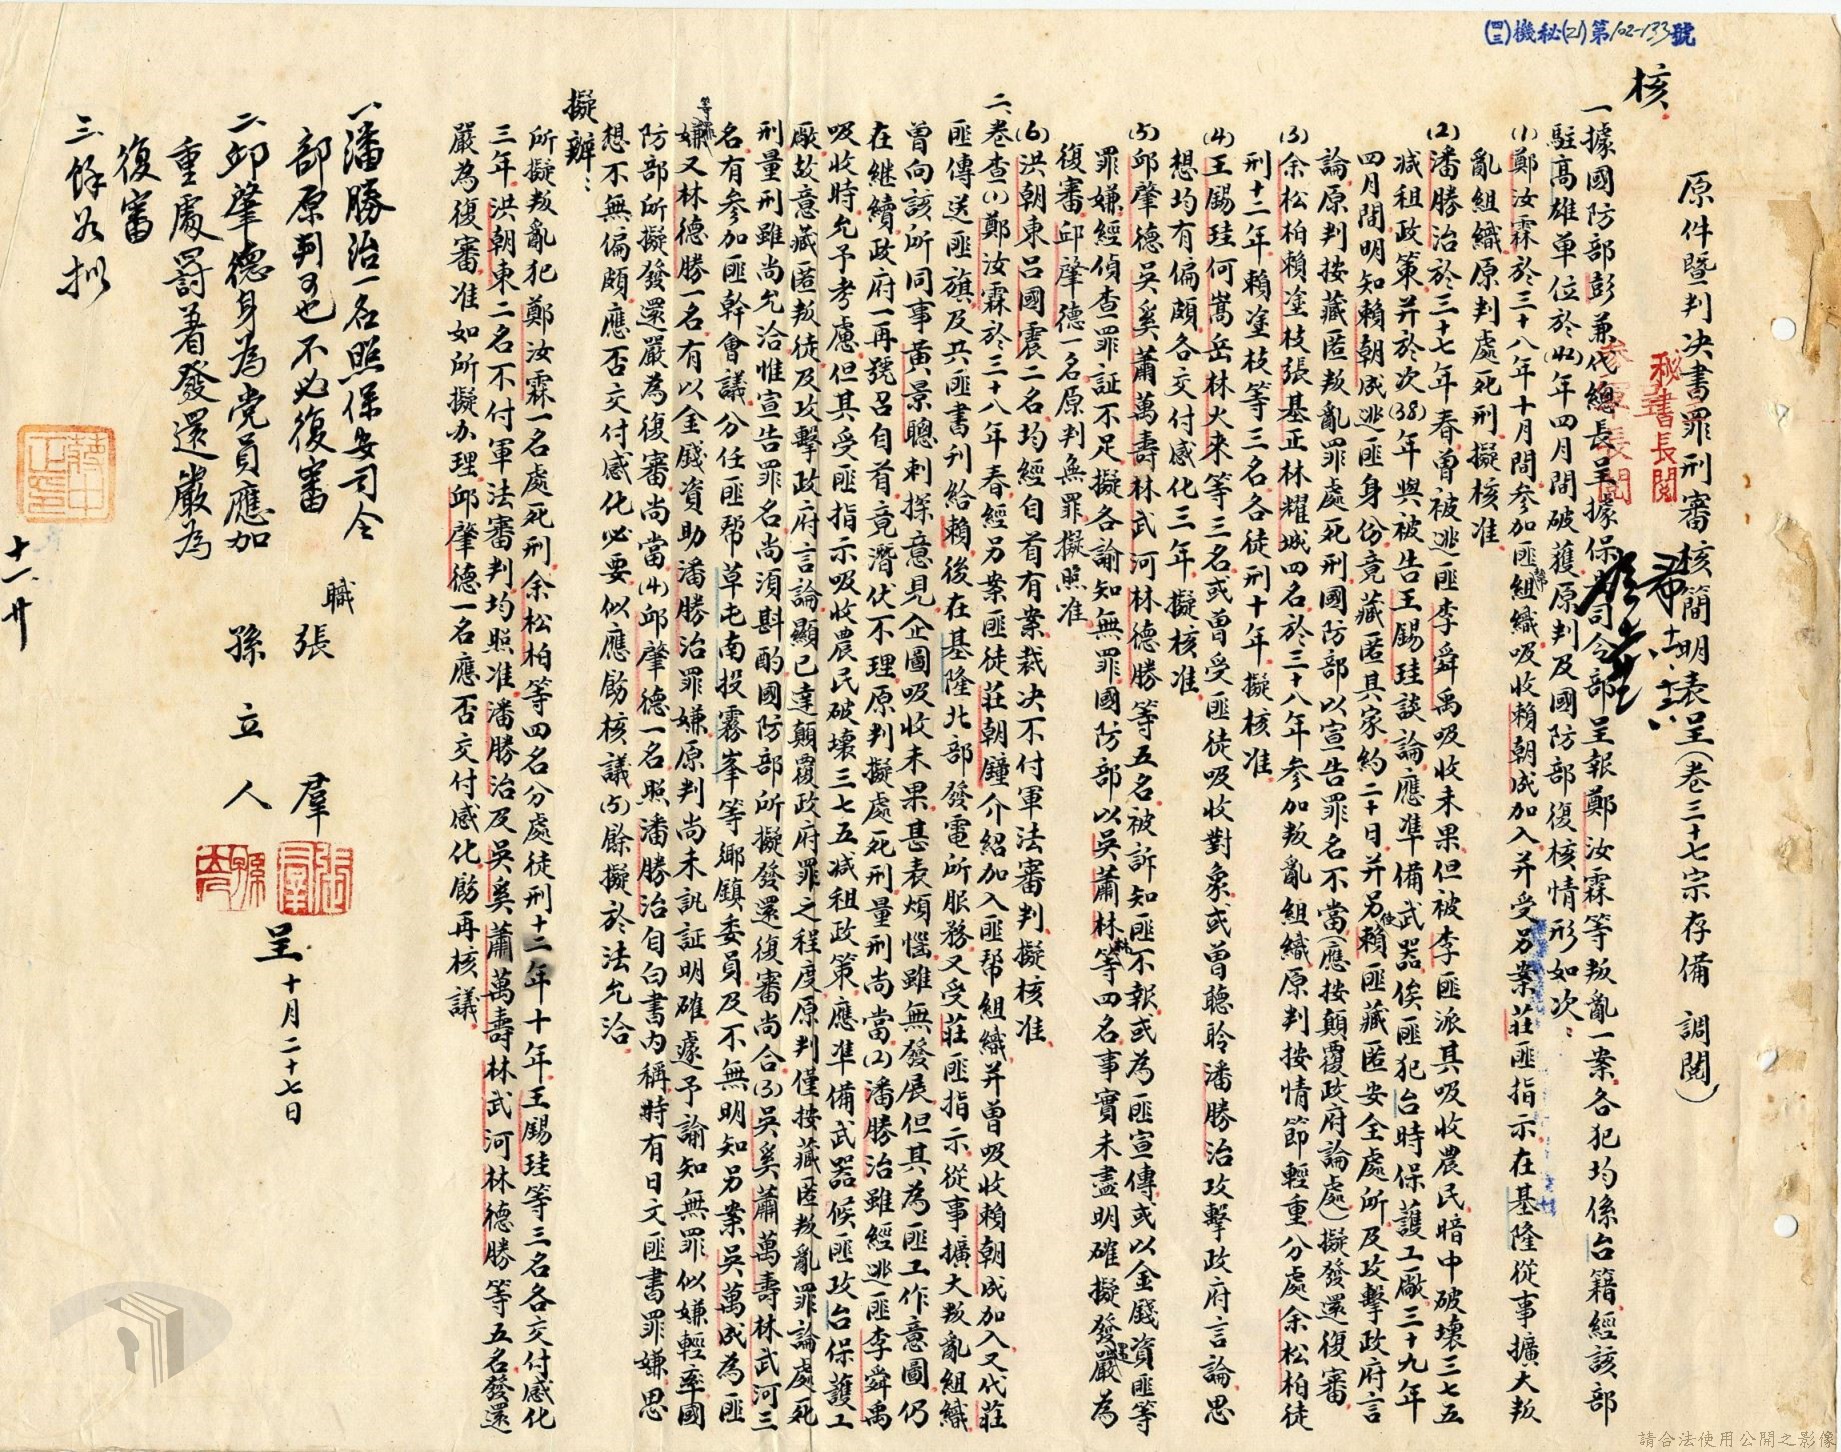 (四三)機秘(乙)第102-133號
核
原件暨判决書罪刑審核簡明表呈(卷三十七宗存備 調閱)
秘書長閱
參軍長閱
一、據國防部彭兼代總長呈據保安司令部呈報鄭汝霖等叛亂一案各犯均係台籍經該部
駐高雄單位於(42)年四月間破獲原判及國防部復核情形如次:
(1)鄭汝霖於三十八年十月間參加匪幫組織吸收賴朝成加入并受另案莊匪指示在基隆從事擴大叛
亂組織原判處死刑擬核准
(2)潘勝治於三十七年春曾被逃匪李舜禹吸收未果但被李匪派其吸收農民暗中破壞三七五
減租政策并於次(38)年與被告王錫珪談論應準備武器俟匪犯台時保護工廠三十九年
四月間明知賴朝成逃匪身份竟藏匿其家約二十日并另使賴匪藏匿安全處所及攻擊政府言
論原判按藏匿叛亂罪處死刑國防部以宣告罪名不當(應按顛覆政府論處)擬發還復審
(3)余松柏賴塗枝張基正林耀城四名於三十八年參加叛亂組織原判按情節輕重分處余松柏徒
刑十二年賴塗枝等三名各徒刑十年擬核准
(4)王錫珪何嵩岳林火來等三名或曾受匪徒吸收對象或曾聽聆潘勝治攻擊政府言論思
想均有偏頗各交付感化三年擬核准
(5)邱肇德吳奚蕭萬壽林武河林德勝等五名被訴知匪不報或為匪宣傳或以金錢資匪等
罪嫌經偵查罪証不足擬各諭知無罪國防部以吳蕭林林等四名事實未盡明確擬發還嚴為
復審邱肇德一名原判無罪擬照准
(6)洪朝東呂國震二名均經自首有案裁决不付軍法審判擬核准
二、卷查(1)鄭汝霖於三十八年春經另案匪徒莊朝鐘介紹加入匪幫組織并曾吸收賴朝成加入又代莊
匪傳送匪旗及共匪書刊給賴後在基隆北部發電所服務又受莊匪指示從事擴大叛亂組織
曾向該所同事黃景聰刺探意見企圖吸收未果甚表煩惱雖無發展但其為匪工作意圖仍
在繼續政府一再號召自首竟潛伏不理原判擬處死刑量刑尚當(2)潘勝治雖經逃匪李舜禹
吸收時允予考慮但其受匪指示吸收農民破壞三七五減租政策應準備武器候匪攻台保護工
廠故意藏匿叛徒及攻擊政府言論顯已達顛覆政府罪之程度原判僅按藏匿叛亂罪論處死
刑量刑雖尚允洽惟宣告罪名尚須斟酌國防部所擬發還復審尚合(3)吳奚蕭萬壽林武河三
名有參加匪幹會議分任匪幫草屯南投霧峯等鄉鎮委員及不無明知另案吳萬成為匪
等罪嫌又林德勝一名有以金錢資助潘勝治罪嫌原判尚未訊証明確遽予諭知無罪似嫌輕率國
防部所擬發還嚴為復審尚當(4)邱肇德一名照潘勝治自白書內稱時有日文匪書罪嫌思
想不無偏頗應否交付感化必要似應飭核議(5)餘擬於法允洽
擬辦:
所擬叛亂犯鄭汝霖一名處死刑余松柏等四名分處徒刑十二年十年王錫珪等三名各交付感化
三年洪朝東二名不付軍法審判均照准潘勝治及吳奚蕭萬壽林武河林德勝等五名發還
嚴為復審准如所擬办理邱肇德一名應否交付感化飭再核議
職 張羣
孫立人 呈 十月二十七日
一、潘勝治一名照保安司令
部原判可也不必復審
二、邱肇德身為党員應加
重處罰着發還嚴為
復審
三、餘如擬
蔣中正印
十一、廿
請合法使用公開之影像